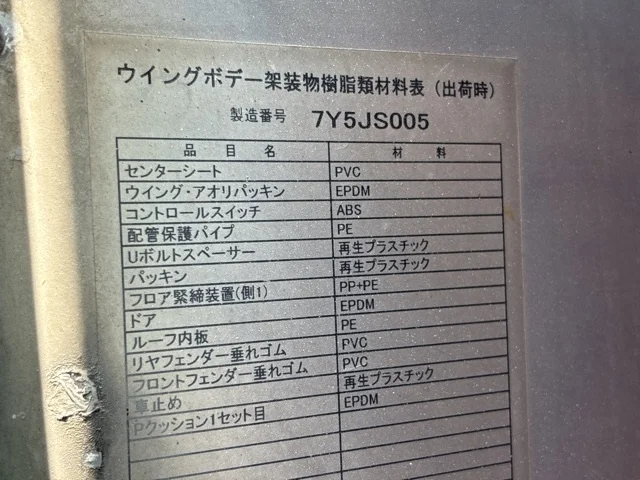 ウイングボデー架装物樹脂類材料表（出荷時）
製造番号 7Y5JS005
品目名 材料
センターシート PVC
ウイング・アオリパッキン EPDM
コントロールスイッチ ABS
配管保護パイプ PE
Uボルトスペーサー 再生プラスチック
パッキン 再生プラスチック
フロア緊締装置(側1) PP+PE
ドア EPDM
ルーフ内板 PE
リヤフェンダー垂れゴム PVC
フロントフェンダー垂れゴム PVC
車止め 再生プラスチック
Pクッション1セット目 EPDM